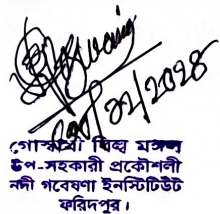 গোস্বামী বিল্ব মঙ্গল
উপ-সহকারী প্রকৌশলী
নদী গবেষণা ইনস্টিটিউট
ফরিদপুর।